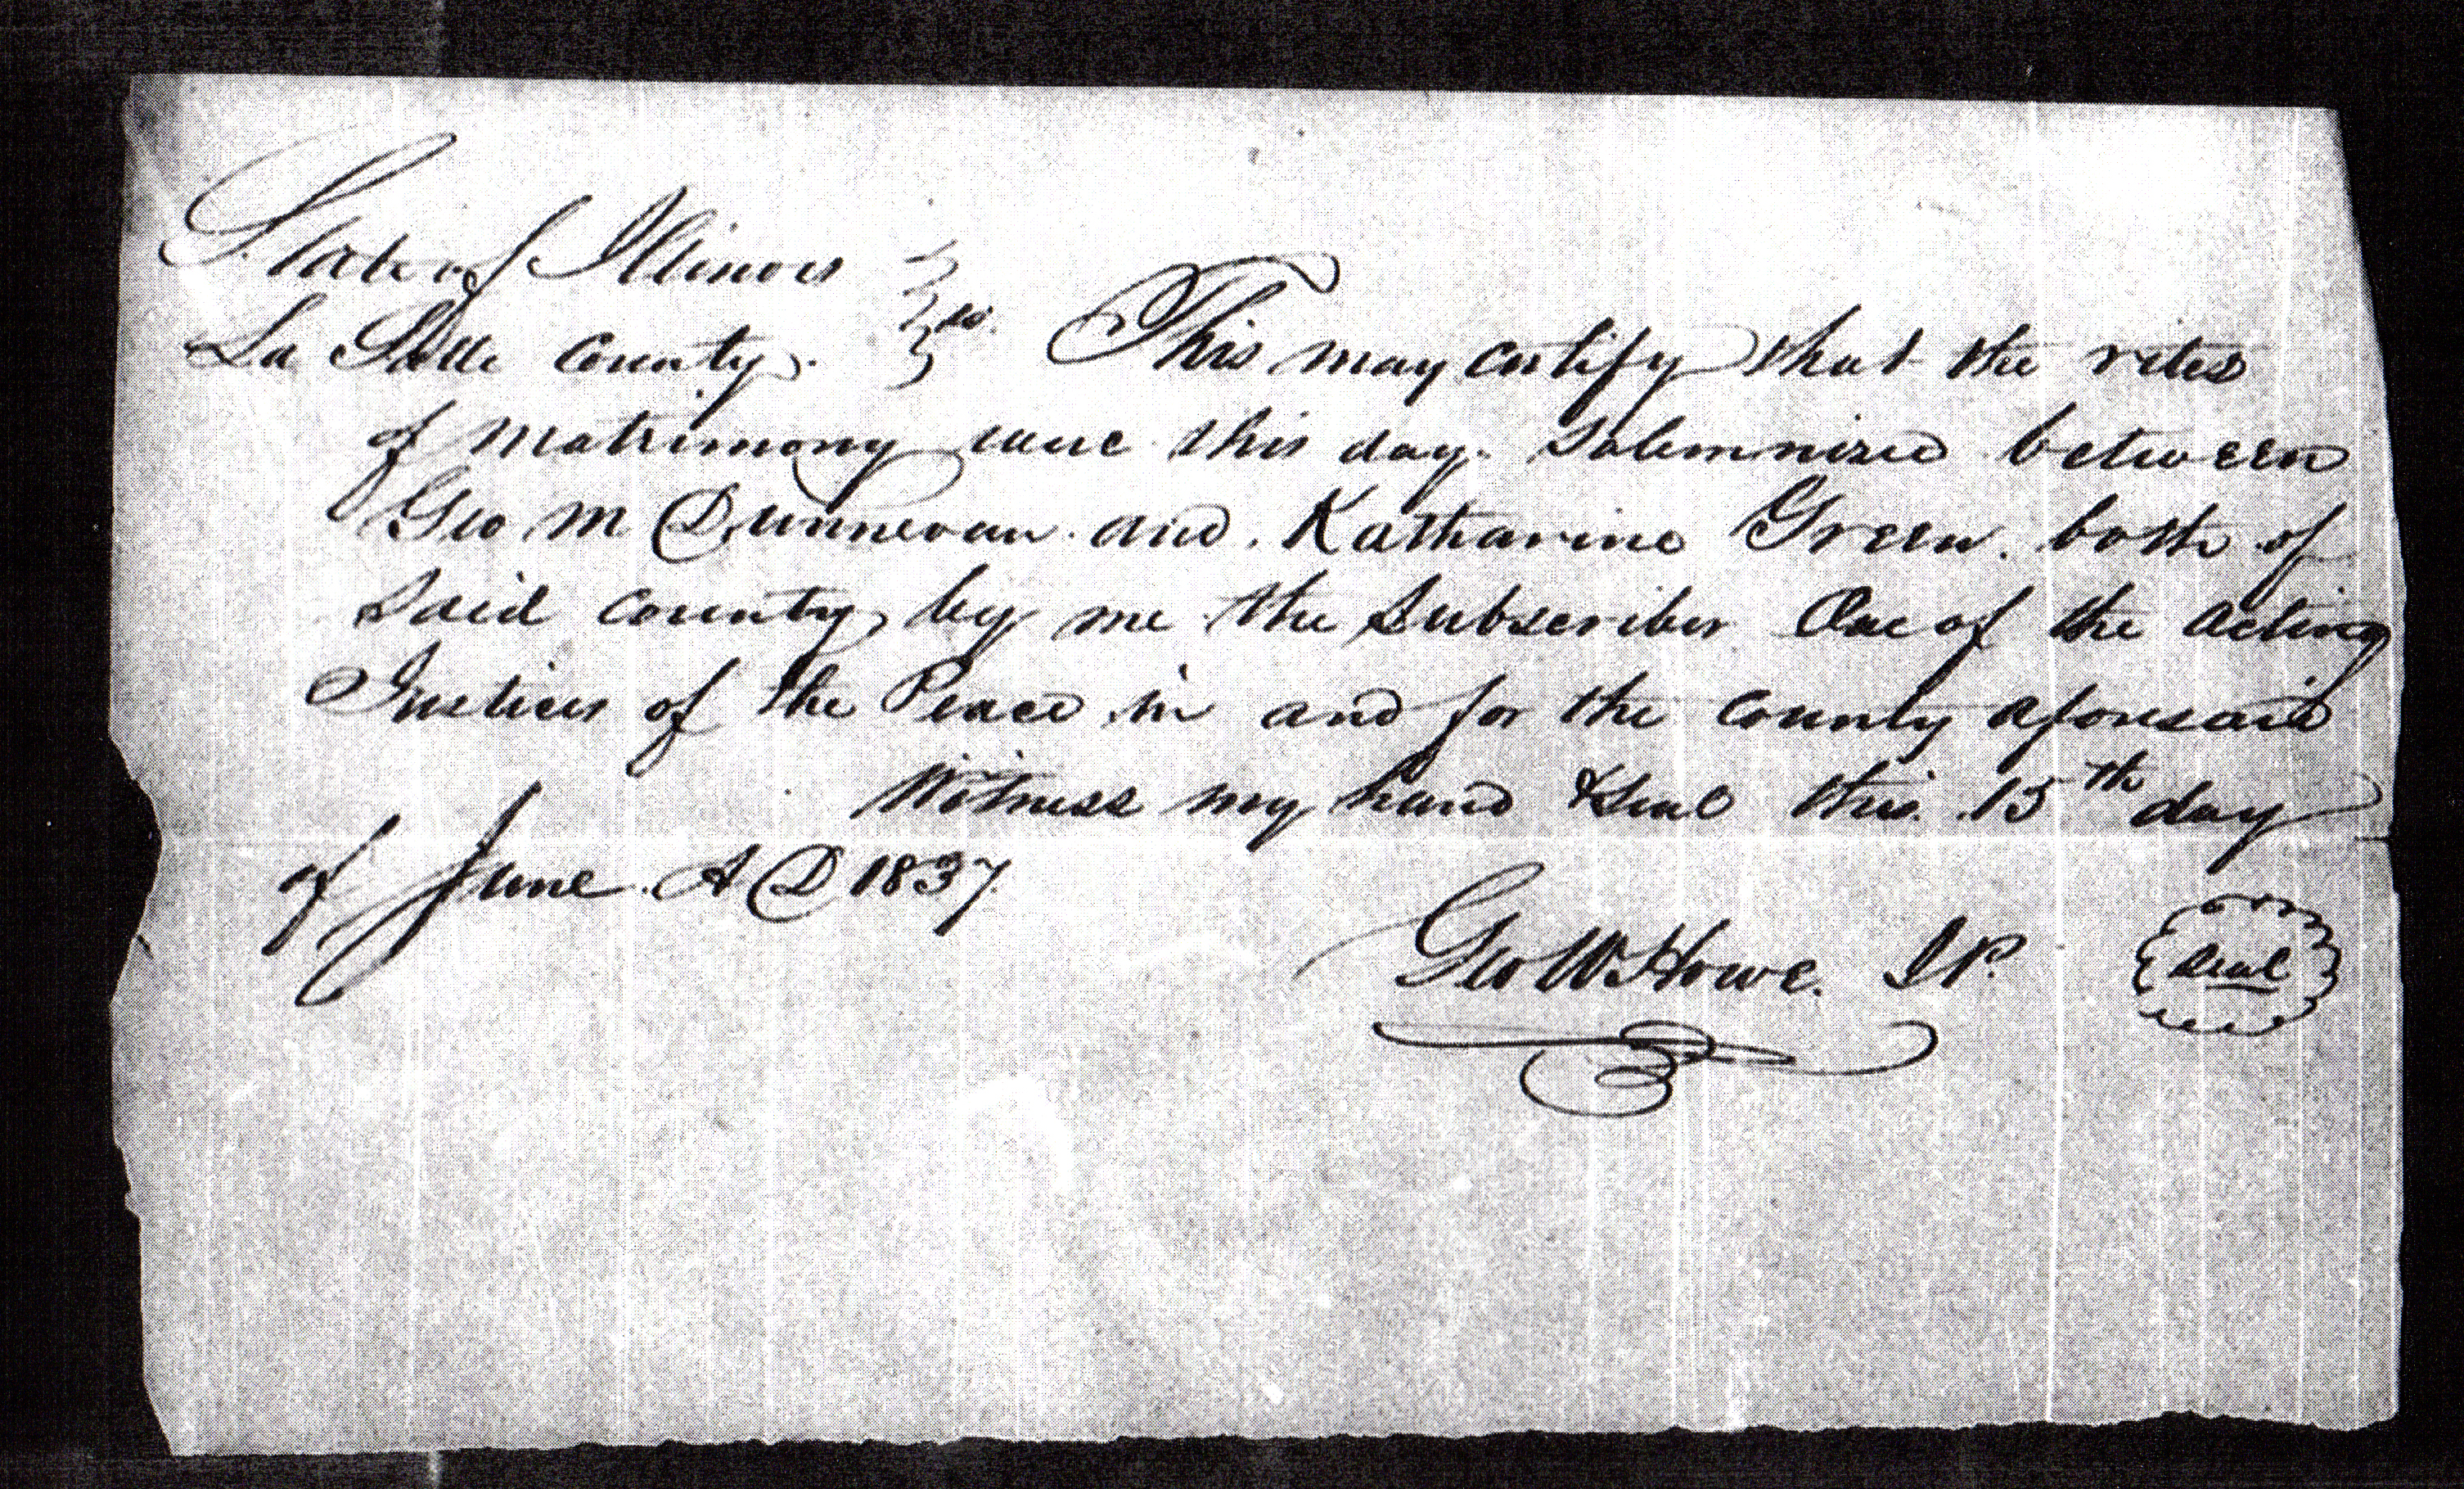 State of Illinois
La Salle County. ss. This may certify that the rites
of matrimony were this day solemnized between
Geo M Dunnevan and Katharine Green both of
said county by me the subscriber One of the acting
Justices of the Peace in and for the County aforesaid
Witness my hand & seal this 15th day
of June A D 1837
Geo W Howe. J P.
Seal